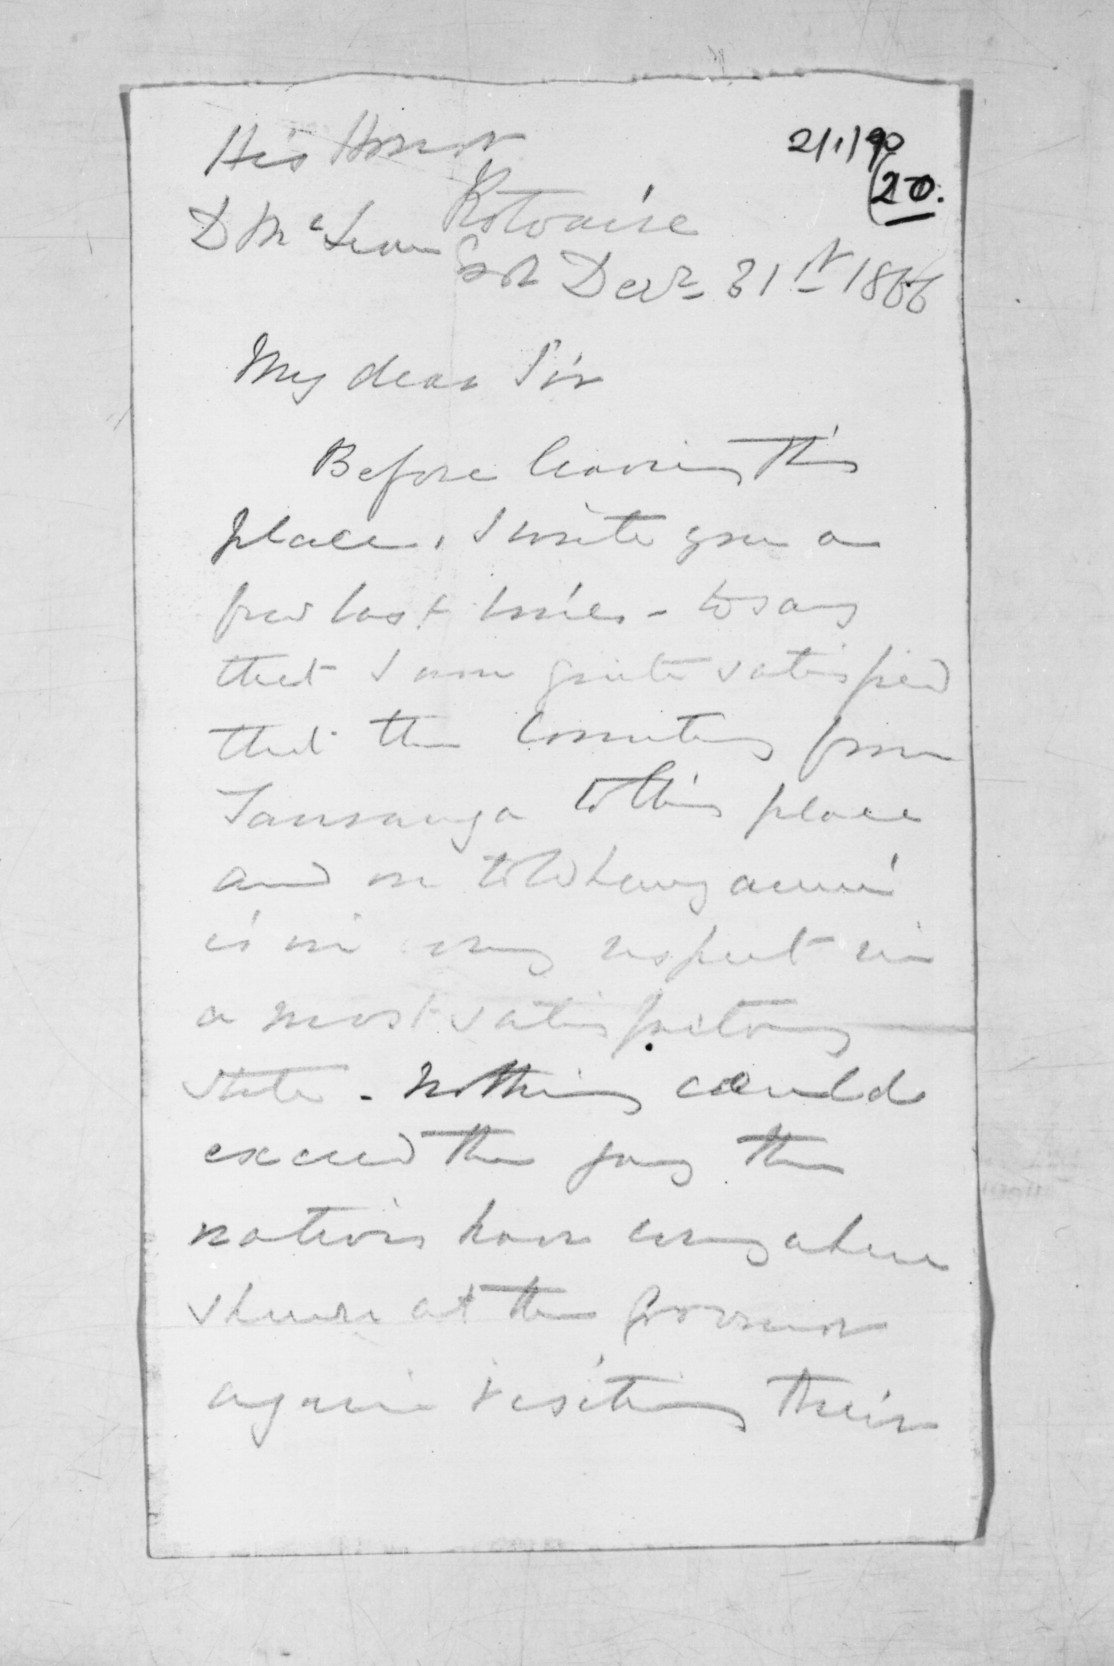 His Honor
2/1/90
(20.
D McLean
Esqr Decr 31st 1866
My dear Sir
Before leaving this
place, I write you a
few last lines - to say
that I am quite satisfied
that the Country from
Tauranga to this place
and on to Whanganui
is in every respect in
a most satisfactory
state - Nothing could
exceed the joy the
natives have every where
shewn at the Governor
again visiting their